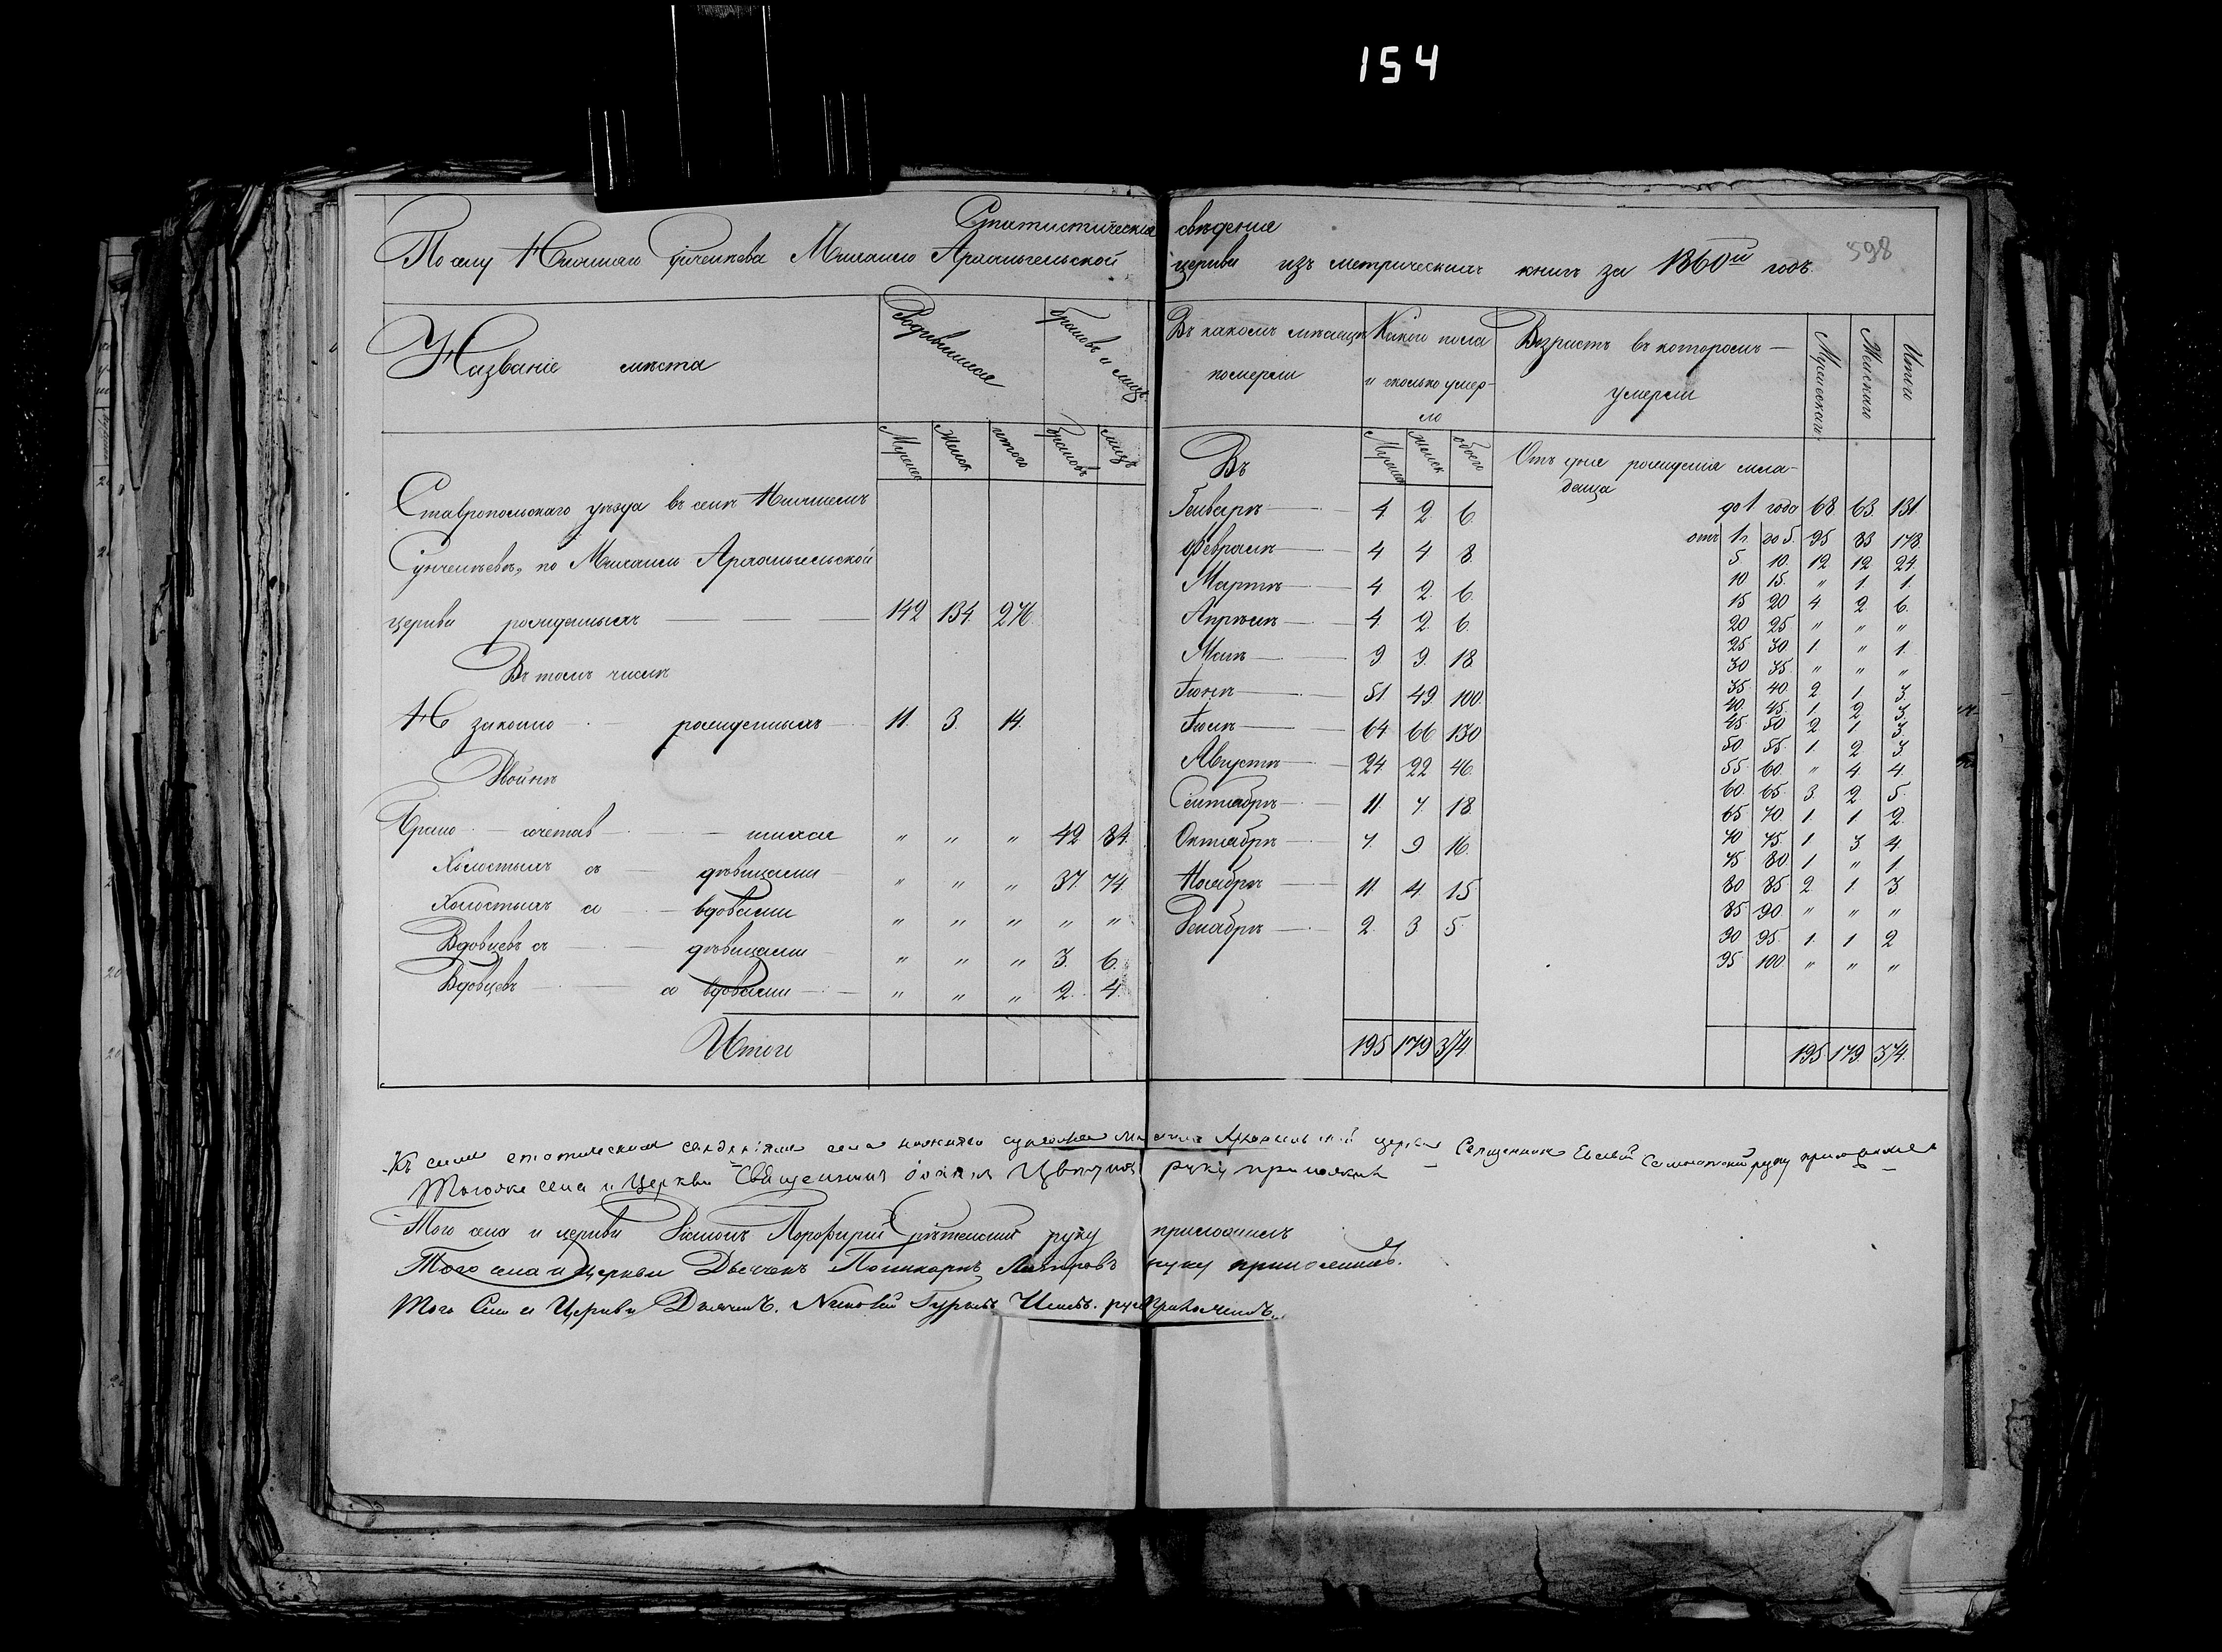 154
Статистическія свѣденія
По селу Нижнаго Сунчелѣева Михаило Архангельской церкви изъ метрическихъ книгъ за 1860й годъ.
598
Названіе мѣста
Родившихся
браковъ и лицъ
Мужеск
Женск
итого
браковъ
лицъ
Ставропольскаго уѣзда въ селѣ Нижнемъ
Сунчелѣевѣ, по Михаило Архангельской
церкви рожденныхъ 142 134. 276.
Въ томъ числѣ
Не законно рожденныхъ 11. 3. 14.
Двойнѣ
Брако сочетав шихся " " " 42 84.
Холостыхъ съ дѣвицами " " " 37. 74.
Холостыхъ со вдовами " " " " "
Вдовцевъ съ дѣвицами " " " 3. 6.
Вдовцевъ со вдовами " " " 2. 4.
Итого
Въ какомъ мѣсяцѣ померли
Какой пола и сколько умерло
Мужеск
женск
обоего
Въ
Генварѣ 4 2. 6.
Февралѣ 4 4 8.
Мартѣ 4 2. 6.
Апрѣлѣ 4. 2. 6.
Маѣ 9 9. 18
Іюнѣ 51 49. 100.
Іюлѣ 64 66 130
Августѣ 24. 22 46.
Сентябрѣ 11. 7. 18.
Октябрѣ 7. 9 16.
Ноябрѣ 11. 4. 15
Декабрѣ 2. 3 5.
195 179 374
Возрастъ въ которомъ умерли
Мужескаго
Женскаго
Итого
Отъ дня рожденія мла-
денца
до 1 года 68 63. 131
отъ 1 г. до 5. 95 83 178.
5 10. 12 12 24.
10 15. " 1. 1.
15 20 4 2. 6.
20 25 " " "
25 30 1 " 1.
30 35. " " "
35 40. 2 1 3
40. 45. 1. 2 3.
45 50 2 1 3.
50 55. 1 2. 3
55 60. " 4. 4.
60. 65. 3. 2 5.
65 70. 1. 1 2.
70 75. 1 3 4.
75 80 1 " 1.
80 85 2 1 3
85 90. " " "
90 95. 1. 1 2
95 100 " " "
195 179. 374.
Къ симъ статическимъ свѣденіямъ села Нижняго Сунчелѣева Михаило Архангельской церкви Священникъ руку приложилъ
Тогоже села и Церкви Священникъ Іоаннъ Цвѣтковъ руку приложилъ
Того села и церкви Діаконъ Порфирій Срѣтенскій руку приложилъ
Того села и Церкви Дьячекъ Поликарпъ Лавровъ руку приложилъ.
Того Села и Церкви руку приложилъ.